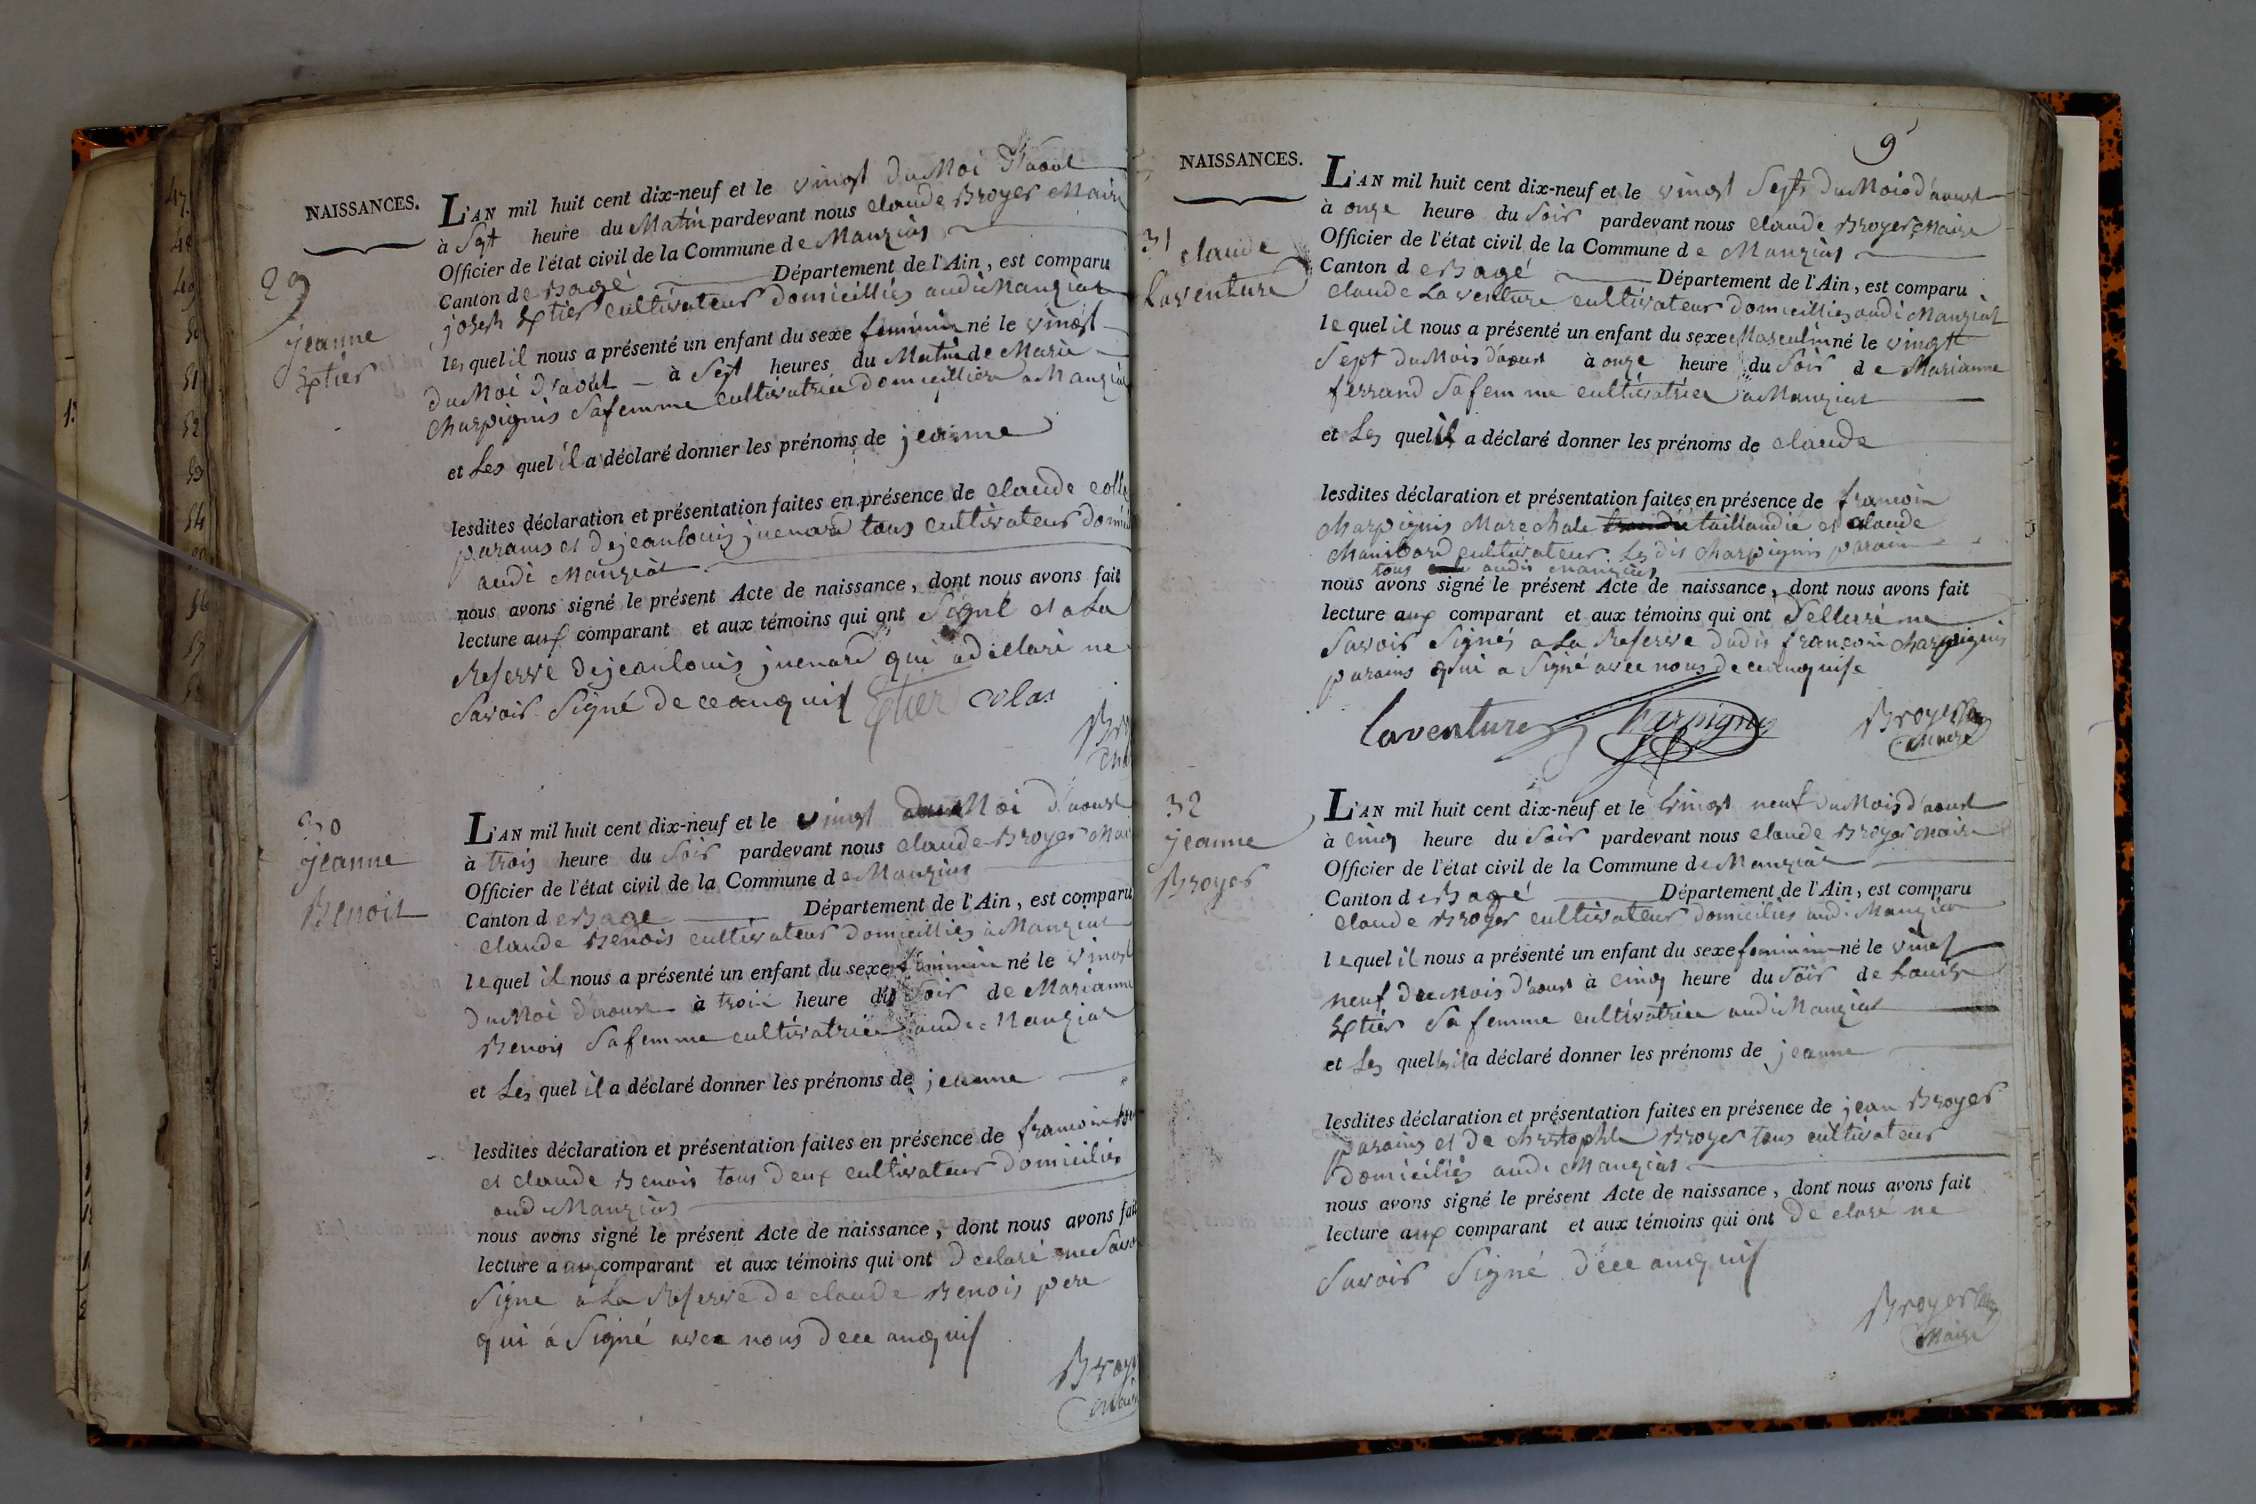 NAISSANCES.
29
jeanne
Extier
L'AN mil huit cent dix-neuf et le vingt du Moi d'aoul
à Sept heure du Matin pardevant nous claude Broyer Maire
Officier de l'état civil de la Commune de Manziat
Canton de Bagé Département de l'Ain, est comparu
joseph Extier cultivateur domicilliés audi Manziat
les quel il nous a présenté un enfant du sexe feminin né le vingt
du Moi d'aout à Sept heures du Matin de Marie
Charpignis Sa femme cultivatrice domicilliée a Manziat
et Les quel il a déclaré donner les prénoms de jeanne
lesdites déclaration et présentation faites en présence de claude
parains et de jeanlouis juenard tous cultivateur
audi Manziat
nous avons signé le présent Acte de naissance, dont nous avons fait
lecture aux comparant et aux témoins qui ont Signé et a La
Reserve de jeanlouis juenard qui a déclaré ne
Savoir Signé de ce anquis Extier colas
30
jeanne
Benoit
L'AN mil huit cent dix-neuf et le vingt du Moi d'aoust
à trois heure du Soir pardevant nous claude Broyer
Officier de l'état civil de la Commune de Manziat
Canton de Bagé Département de l'Ain, est comparu
claude Benois cultivateur domicilliés a Manziat
lequel il nous a présenté un enfant du sexe feminin né le vingt
du Moi d'aoust à trois heure du Soir de Marianne
Benois Sa femme cultivatrice audi Manziat
et Les quel il a déclaré donner les prénoms de jeanne
lesdites déclaration et présentation faites en présence de francois
et claude Benois tous deux cultivateur domiciliés
audi Manziat
nous avons signé le présent Acte de naissance, dont nous avons fait
lecture a aux comparant et aux témoins qui ont declaré ne Savoir
Signe a La Reserve de claude Benois pere
qui á Signé avec nous de ce anquis
NAISSANCES.
9
31
claude
Laventure
L'AN mil huit cent dix-neuf et le vingt Sept du Mois d'aoust
à onze heure du Soir pardevant nous claude Broyer Maire
Officier de l'état civil de la Commune de Manziat
Canton de Bagé Département de l'Ain, est comparu
claude Laventure cultivateur domicilliés audi Manziat
lequel il nous a présenté un enfant du sexe Masculin né le vingt
Sept du Mois d'aoust à onze heure du Soir de Marianne
ferrand Sa femme cultivatrice a Manziat
et Les quel il a déclaré donner les prénoms de claude
lesdites déclaration et présentation faites en présence de francois
Charpignis Marechale taillandié et claude
Manibard cultivateur Les dis charpignis parain
tous audis Manziat
nous avons signé le présent Acte de naissance, dont nous avons fait
lecture aux comparant et aux témoins qui ont delleré ne
Savoir Signés a La Reserve dudis francois charpignis
parains qui a Signé avec nous de ce anquise
Laventure Charpigny Broyer
Maire
32
jeanne
Broyer
L'AN mil huit cent dix-neuf et le vingt neuf du Mois d'aoust
à cinq heure du Soir pardevant nous claude Broyer Maire
Officier de l'état civil de la Commune de Manziat
Canton de Bagé Département de l'Ain, est comparu
claude Broyer cultivateur domiciliés audi Manziat
lequel il nous a présenté un enfant du sexe feminin né le vingt
neuf du Mois d'aoust à cinq heure du Soir de Louise
Extier Sa femme cultivatrice audi Manziat
et Les quel il a déclaré donner les prénoms de jeanne
lesdites déclaration et présentation faites en présence de jean Broyer
parains et de christophle Broyer tous cultivateur
domiciliés audi Manziat
nous avons signé le présent Acte de naissance, dont nous avons fait
lecture aux comparant et aux témoins qui ont declaré ne
Savoir Signé de ce anquis
Broyer
Maire